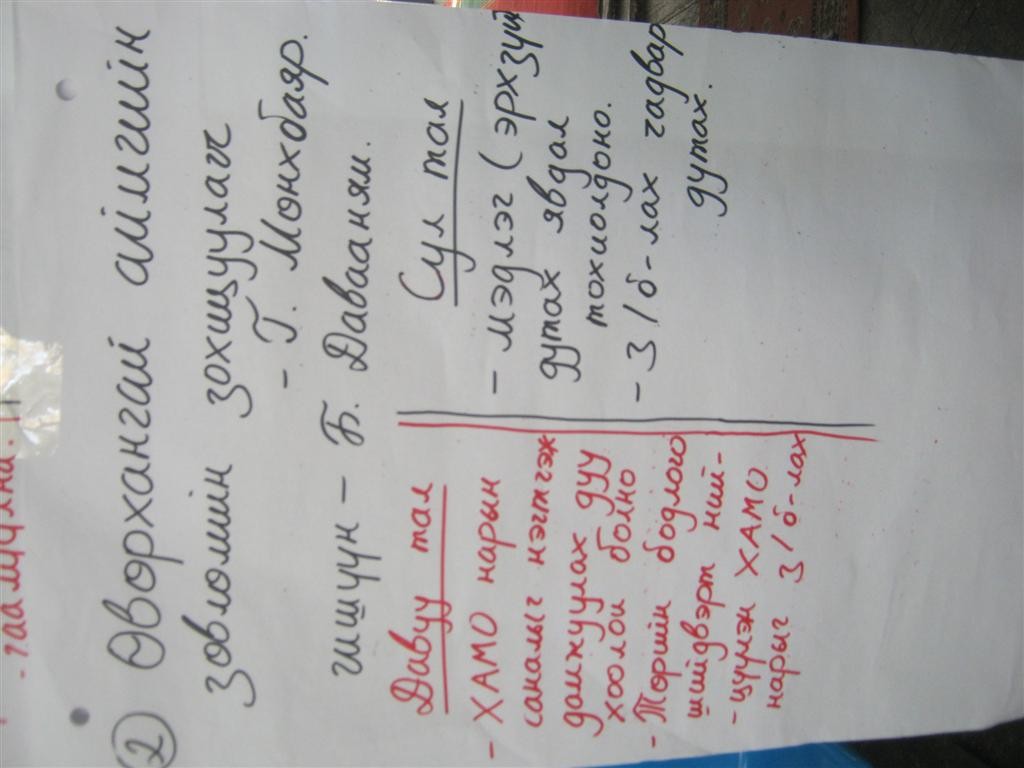 - таамуулна.
② Өворхангай аймгийн
зөвлөлийн зохицуулагч
- Г. Мөнхбаяр.
гишүүн - Б. Давааням.
Давуу тал
- ХАМО нарын
саналыг нэгтгэж
дамжуулах дуу
хоолой болно
- Төрийн бодлого
шийдвэрт ний-
- цүүлэж ХАМО
нарыг З/б-лах
Сул тал
- мэдлэг (эрхзүй
дутах явдал
тохиолдоно.
- З/б-лах чадвар
дутах.